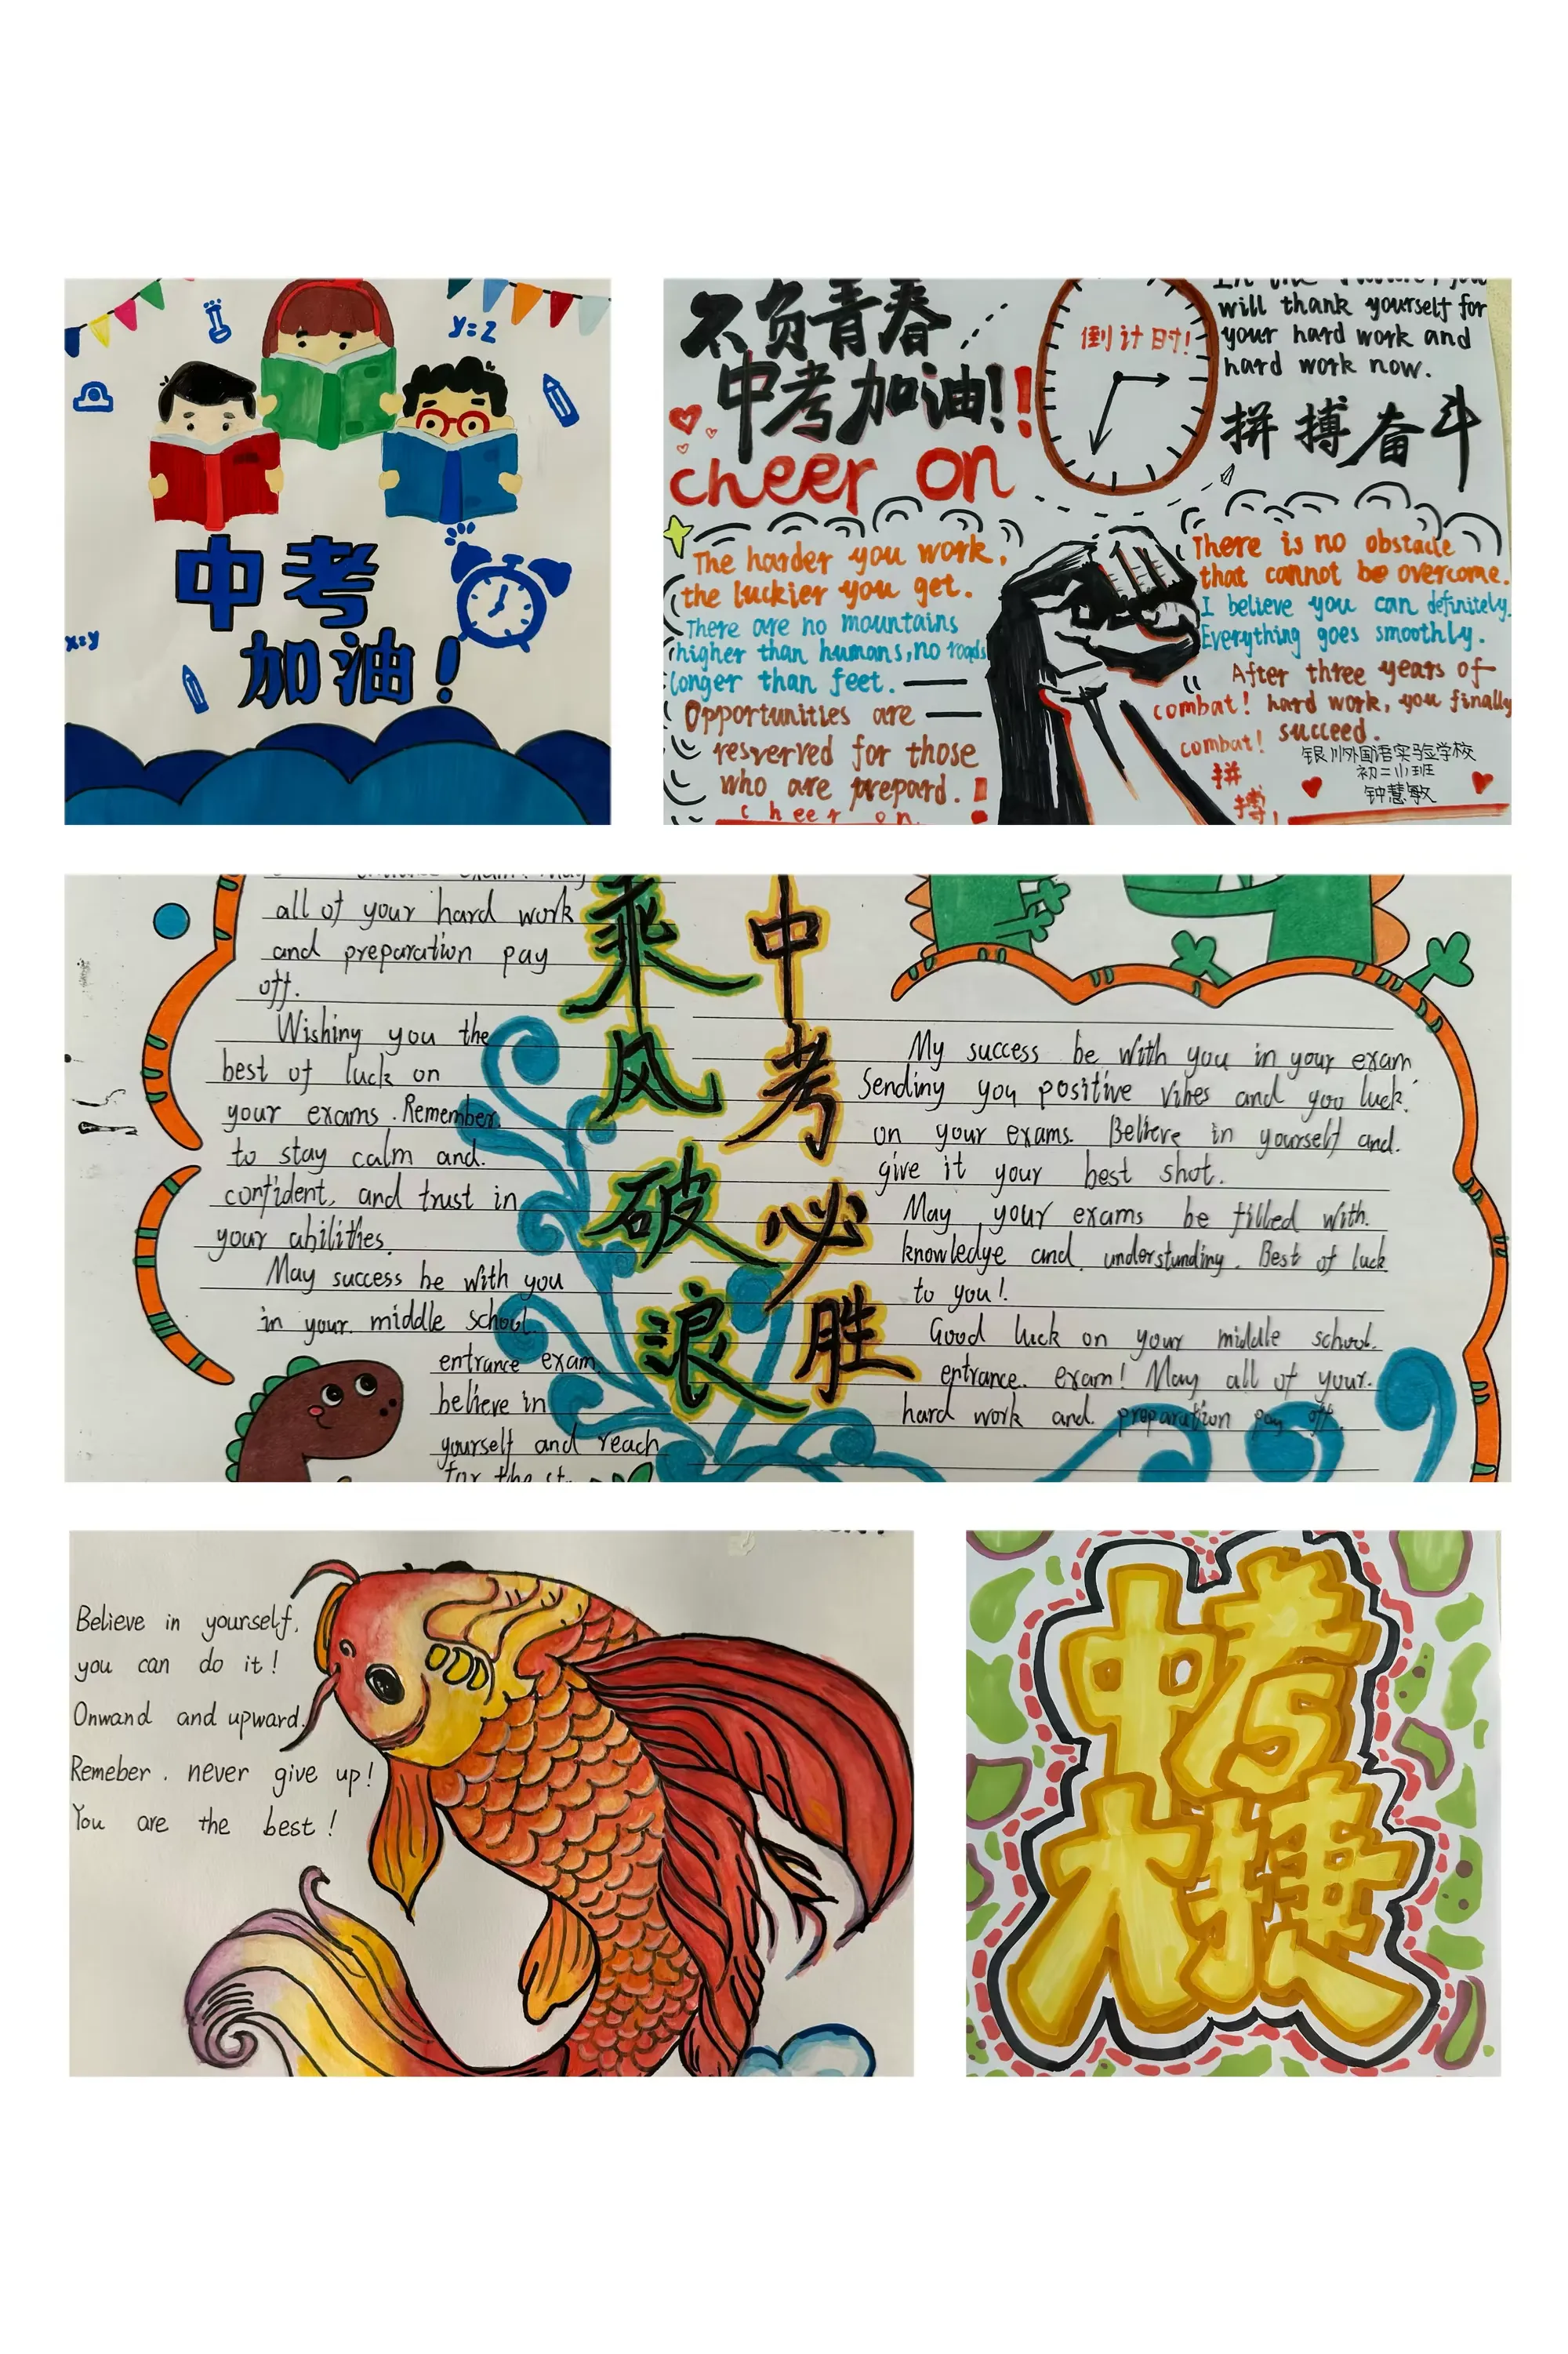 y=2
x=y
中考
加油!
不负青春
中考加油!!
cheer on
倒计时!
will thank yourself for
your hard work and
hard work now.
拼搏奋斗
The harder you work,
the luckier you get.
There are no mountains
higher than humans, no roads
longer than feet.
Opportunities are
resverved for those
who are prepard.
cheer on
There is no obstacle
that cannot be overcome.
I believe you can definitely.
Everything goes smoothly.
After three years of
combat! hard work, you finally
combat! succeed.
拼
搏!
银川外国语实验学校
钟慧敏
all of your hard work
and preparation pay
off.
Wishing you the
best of luck on
your exams. Remember.
to stay calm and.
confident, and trust in
your abilities.
May success be with you
in your. middle school
entrance exam.
believe in
yourself and reach
乘风破浪
中考必胜
My success be with you in your exam
Sending you positive vibes and you luck.
on your exams. Believe in yourself and.
give it your best shot.
May your exams be filled with.
knowledge and. understanding. Best of luck
to you!
Good luck on your middle school.
entrance. exam! May all of your.
hard work and. preparation pay off.
Believe in yourself,
you can do it!
Onwand and upward.
Remeber. never give up!
You are the best!
中考
大捷